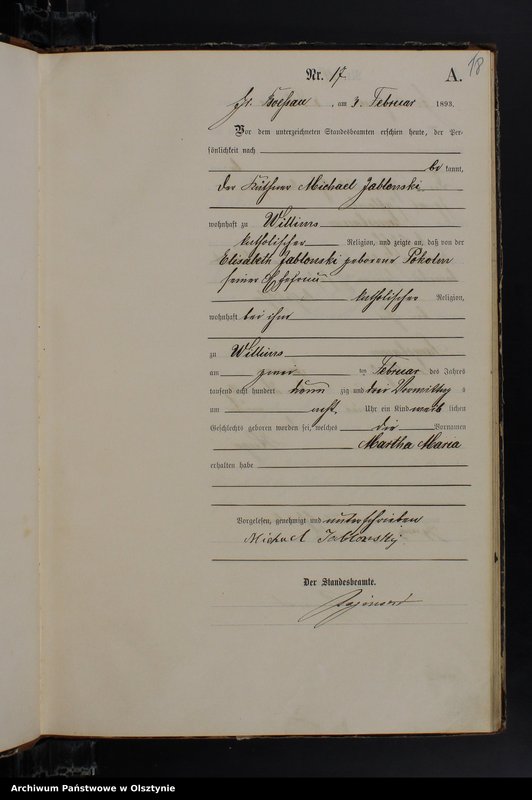 18
Nr. 17. A.
am 3. Februar 1893.
Vor dem unterzeichneten Standesbeamten erschien heute, der Per-
sönlichkeit nach
be kannt,
der Käthner Michael Jablonski
wohnhaft zu Willims
katholischer Religion, und zeigte an, daß von der
Elisabeth Jablonski geborene Pokolm
seiner Ehefrau
katholischer Religion,
wohnhaft bei ihm
zu Willims
am zwei ten Februar des Jahres
tausend acht hundert neun zig und drei Vormittag s
um acht Uhr ein Kind weib lichen
Geschlechts geboren worden sei, welches die Vornamen
Martha Maria
erhalten habe
Vorgelesen, genehmigt und unterschrieben
Michael Jablonsky
Der Standesbeamte.
Archiwum Państwowe w Olsztynie